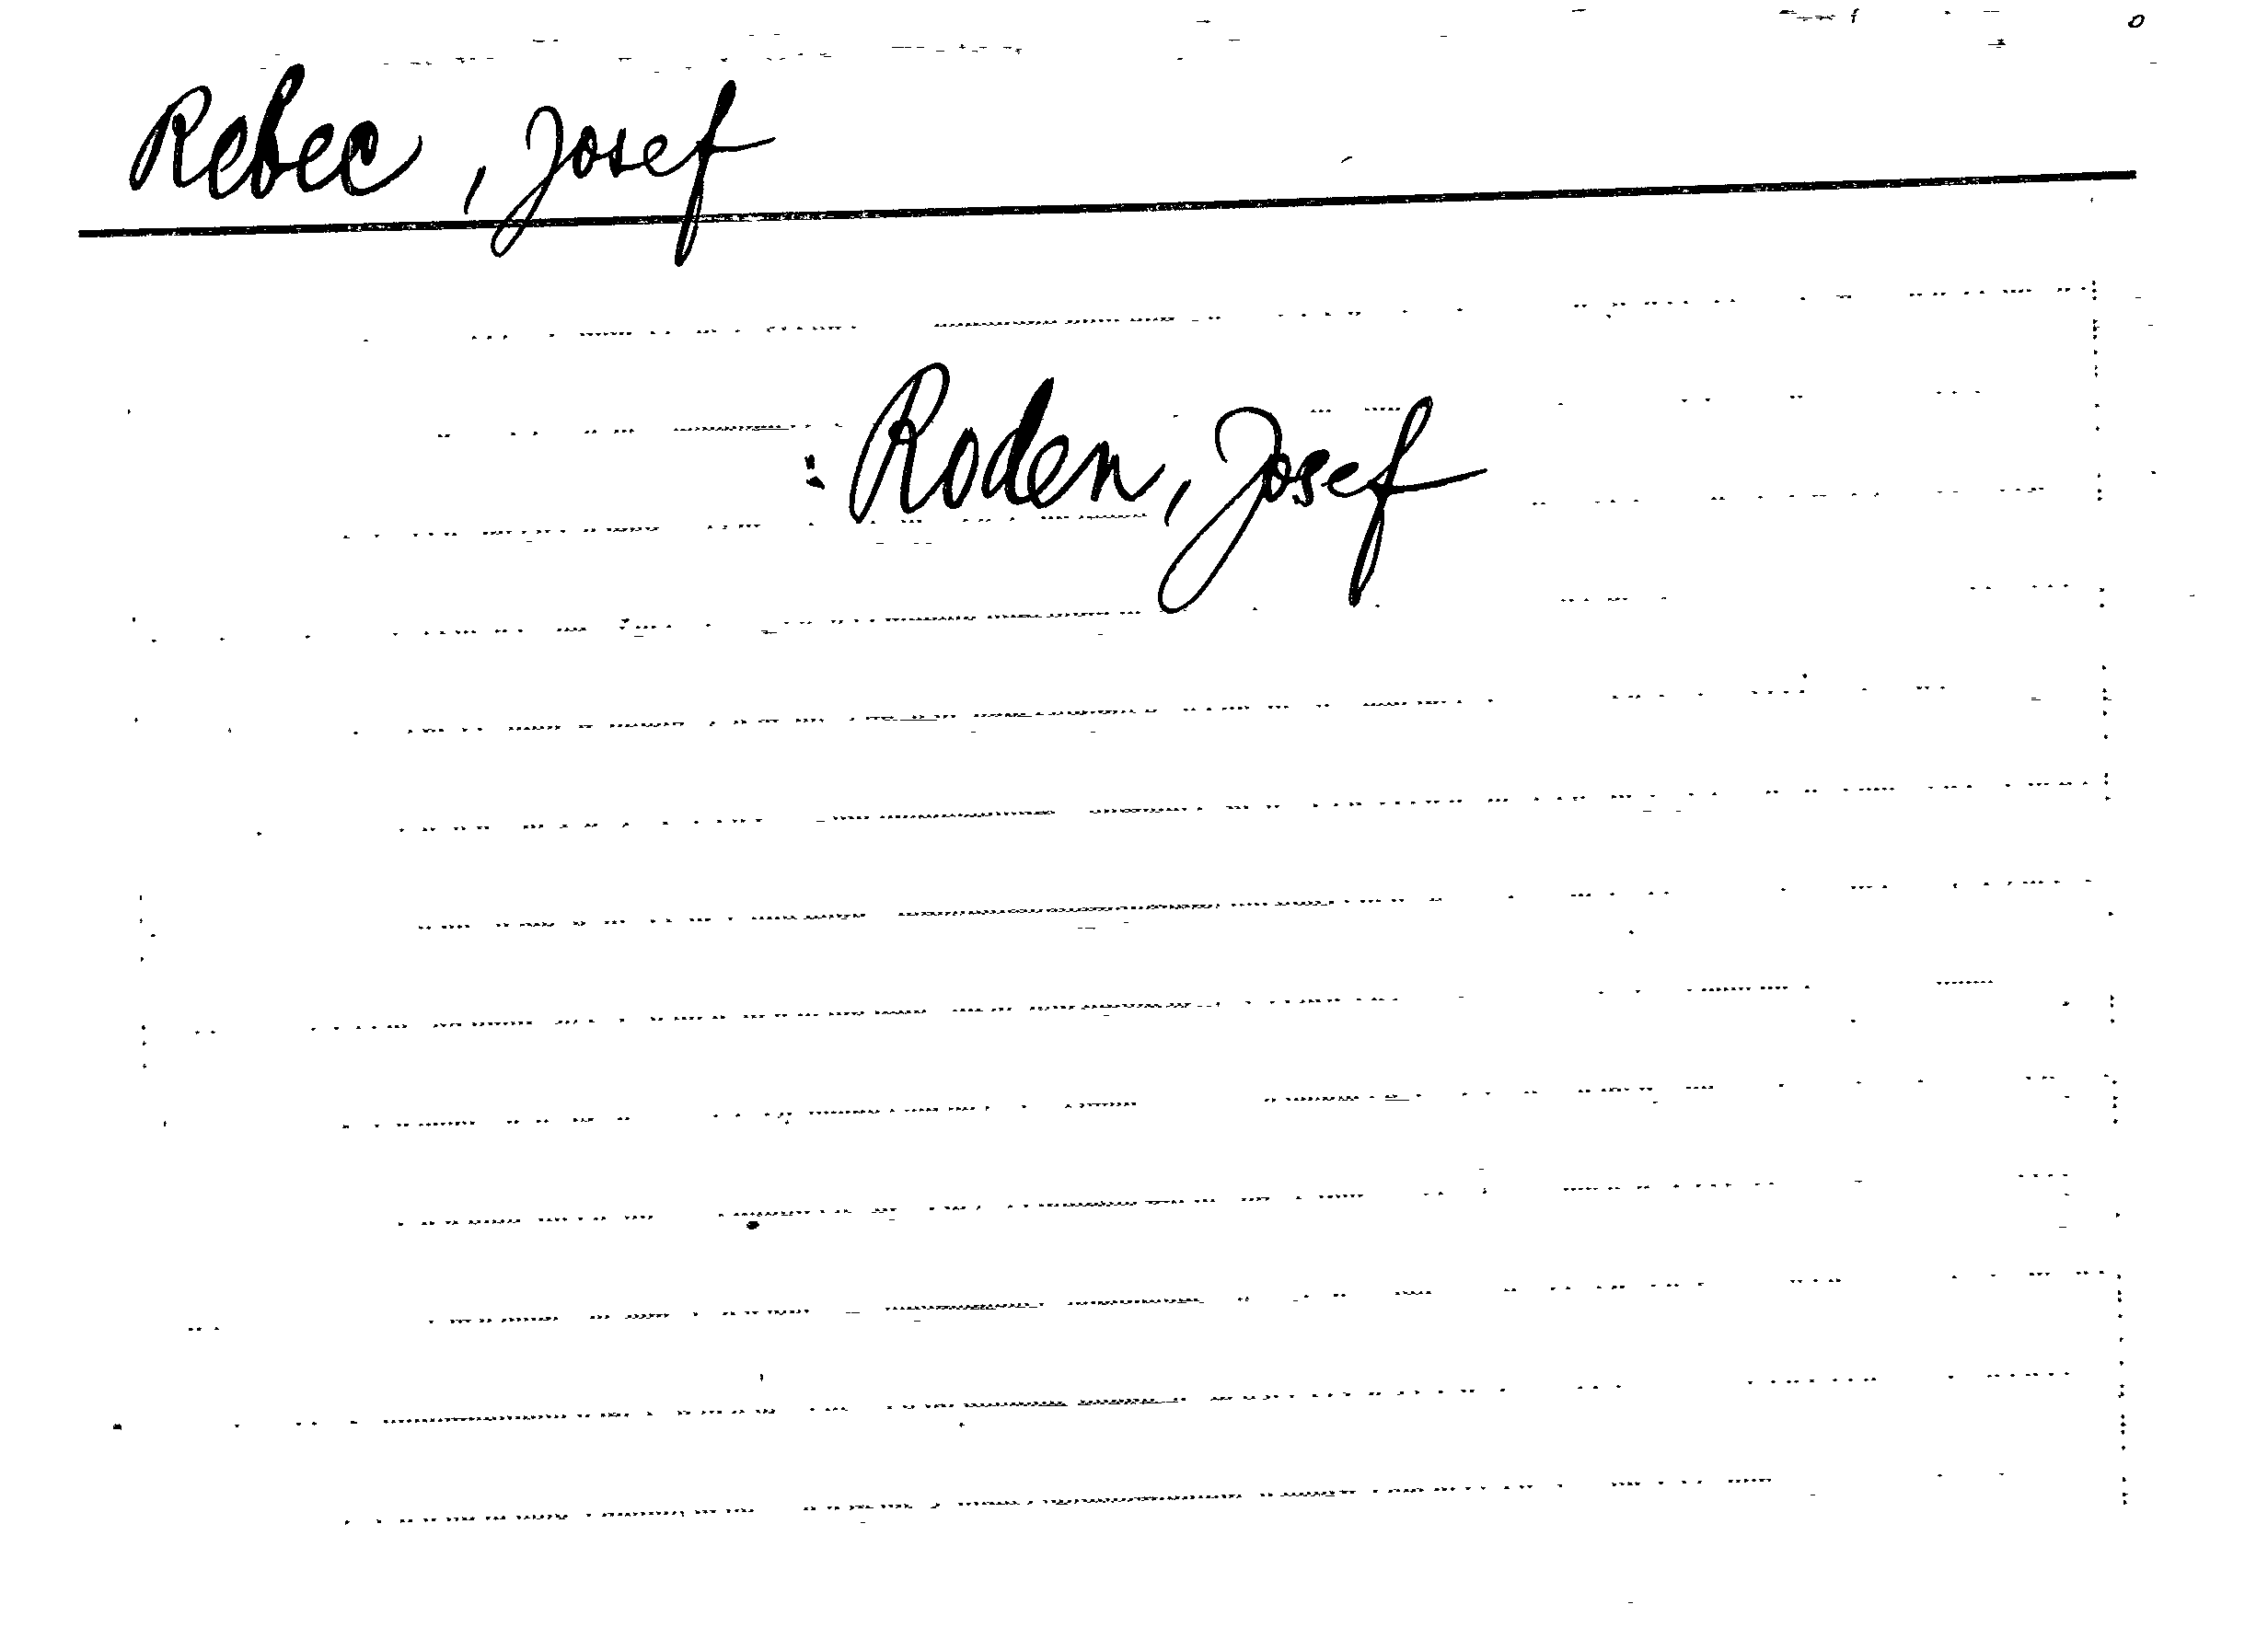 Rebec, Josef
: Roden, Josef